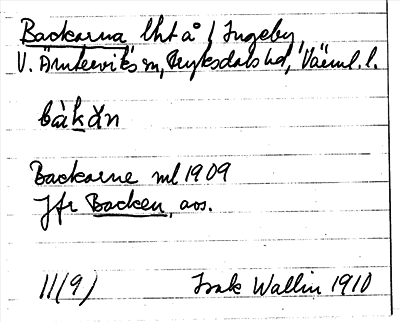 Backarna lht å 1 Ingeby,
V. Ämterviks sn, Fryksdals hd, Värml. l.
bàkàn
Backarne ml 1909
Jfr Backen, avs.
11(9) Isak Wallin 1910